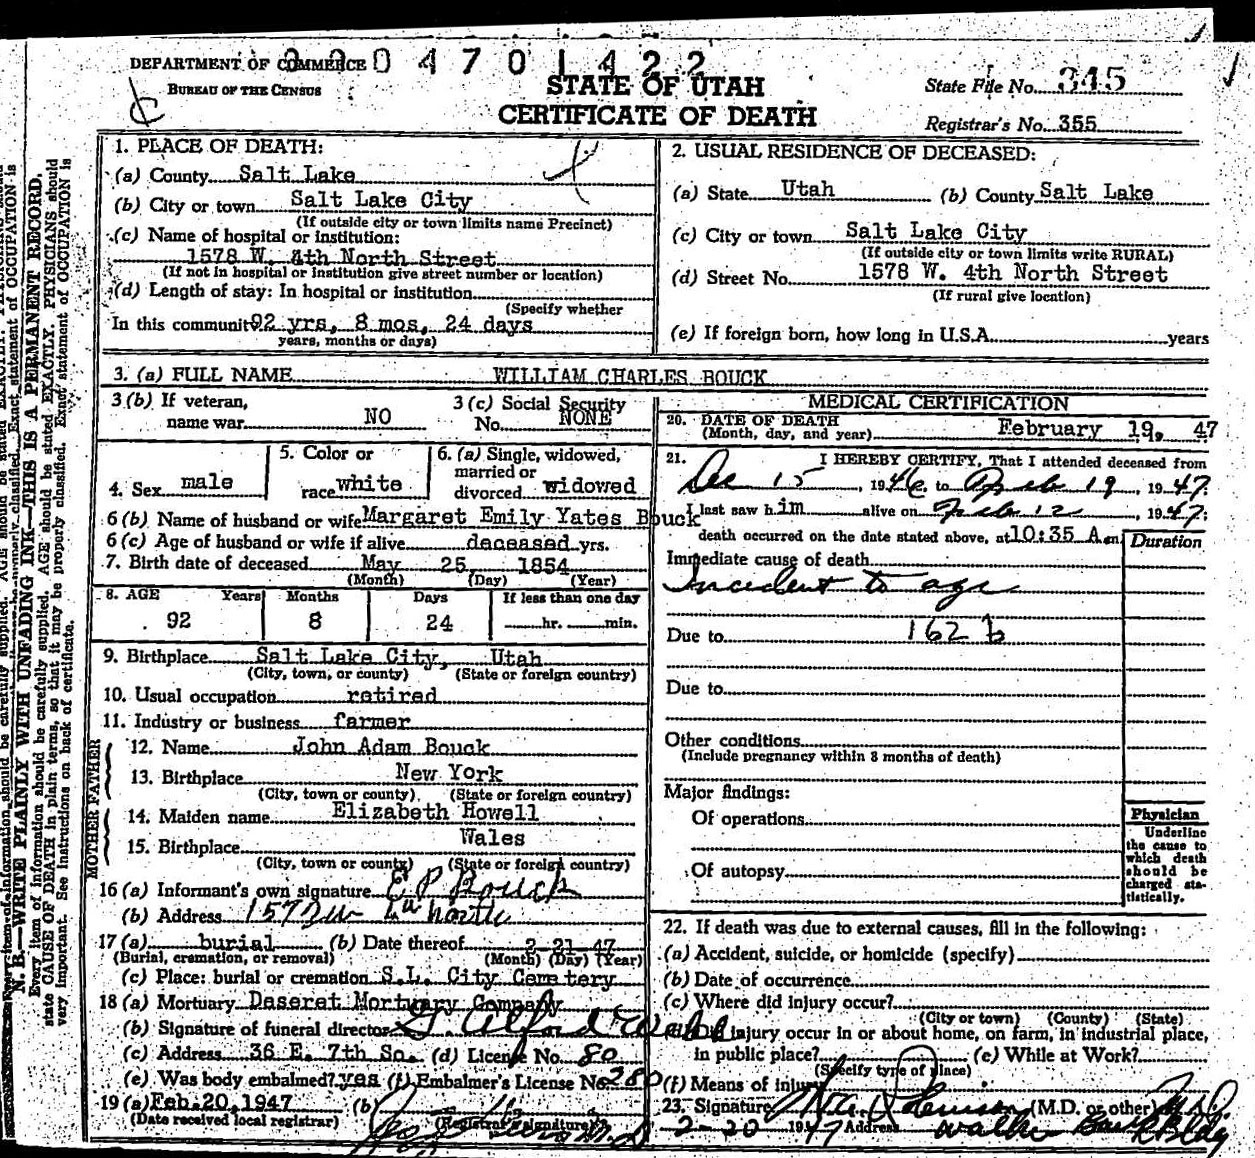 DEPARTMENT OF COMMERCE
BUREAU OF THE CENSUS
04701422
STATE OF UTAH
CERTIFICATE OF DEATH
State File No. 345
Registrar's No. 355
1. PLACE OF DEATH:
(a) County Salt Lake
(b) City or town Salt Lake City
(If outside city or town limits name Precinct)
(c) Name of hospital or institution:
1578 W. 4th North Street
(If not in hospital or institution give street number or location)
(d) Length of stay: In hospital or institution
(Specify whether
In this community 92 yrs, 8 mos, 24 days
years, months or days)
2. USUAL RESIDENCE OF DECEASED:
(a) State Utah (b) County Salt Lake
(c) City or town Salt Lake City
(If outside city or town limits write RURAL)
(d) Street No. 1578 W. 4th North Street
(If rural give location)
(e) If foreign born, how long in U.S.A. years
3. (a) FULL NAME WILLIAM CHARLES BOUCK
3 (b) If veteran,
name war NO
3 (c) Social Security
No. NONE
4. Sex male
5. Color or
race white
6. (a) Single, widowed,
married or
divorced widowed
6 (b) Name of husband or wife Margaret Emily Yates Bouck
6 (c) Age of husband or wife if alive deceased yrs.
7. Birth date of deceased May 25 1854
(Month) (Day) (Year)
8. AGE Years Months Days If less than one day
92 8 24 hr. min.
9. Birthplace Salt Lake City, Utah
(City, town, or county) (State or foreign country)
10. Usual occupation retired
11. Industry or business farmer
FATHER
12. Name John Adam Bouck
13. Birthplace New York
(City, town or county) (State or foreign country)
MOTHER
14. Maiden name Elizabeth Howell
15. Birthplace Wales
(City, town or county) (State or foreign country)
16 (a) Informant's own signature E P Bouck
(b) Address
17 (a) burial (b) Date thereof 2-21-47
(Burial, cremation, or removal) (Month) (Day) (Year)
(c) Place: burial or cremation S.L. City Cemetery
18 (a) Mortuary Deseret Mortuary Company
(b) Signature of funeral director
(c) Address 36 E. 7th So. (d) License No. 80
(e) Was body embalmed? yes (f) Embalmer's License No. 280
19 (a) Feb. 20, 1947 (b)
(Date received local registrar) (Registrar's signature)
MEDICAL CERTIFICATION
20. DATE OF DEATH
(Month, day, and year) February 19, 47
21. I HEREBY CERTIFY, That I attended deceased from
Dec 15, 1946 to Feb 19, 1947;
I last saw him alive on Feb 12, 1947;
death occurred on the date stated above, at 10:35 A.m.
Duration
Immediate cause of death
Incident to age
Due to 162 b
Due to
Other conditions
(Include pregnancy within 3 months of death)
Major findings:
Of operations
Of autopsy
Physician
Underline
the cause to
which death
should be
charged sta-
tistically.
22. If death was due to external causes, fill in the following:
(a) Accident, suicide, or homicide (specify)
(b) Date of occurrence
(c) Where did injury occur?
(City or town) (County) (State)
Did injury occur in or about home, on farm, in industrial place,
in public place? (e) While at Work?
(Specify type of place)
(f) Means of injury
23. Signature (M.D. or other)
2-20 1947 Address Walker Bank Bldg
N. B.—WRITE PLAINLY WITH UNFADING INK—THIS IS A PERMANENT RECORD.
Every item of information should be carefully supplied. AGE should be stated EXACTLY. PHYSICIANS should
state CAUSE OF DEATH in plain terms, so that it may be properly classified. Exact statement of OCCUPATION is
very important. See instructions on back of certificate.